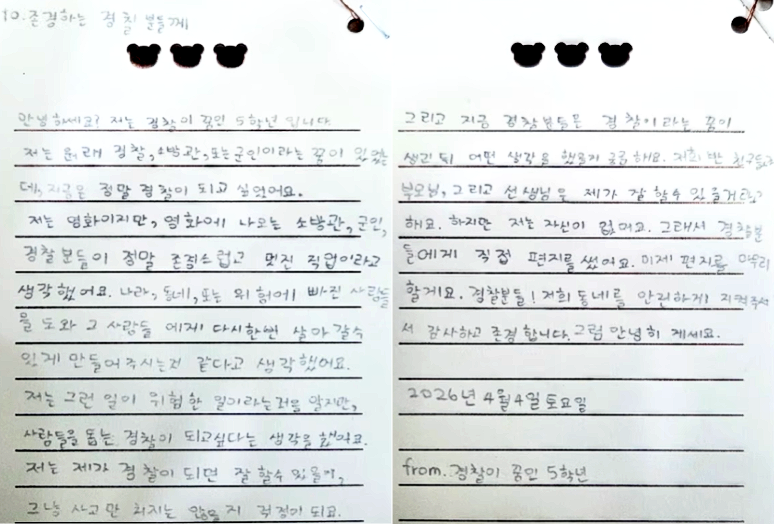 To.존경하는 경찰 분들께
안녕하세요? 저는 경찰이 꿈인 5학년 입니다
저는 원래 경찰,소방관,또는군인이라는 꿈이 있었는
데,지금은 정말 경찰이 되고 싶었어요.
저는 영화이지만, 영화에 나오는 소방관,군인,
경찰분들이 정말 존경스럽고 멋진 직업이라고
생각했어요. 나라, 동네,또는 위험에 빠진 사람들
을 도와 그 사람들 에게 다시한번 살아갈수
있게 만들어주시는건 같다고 생각했어요.
저는 그런 일이 위험한 일이라는것을 알지만,
사람들을 돕는 경찰이 되고싶다는 생각을 했어요.
저는 제가 경찰이 되면 잘 할수 있을까,
그냥 사고만 치지는 않을 지 걱정이 되요.
그리고 지금 경찰분들은 경찰이라는 꿈이
생긴 뒤 어떤 생각을 했을지 궁금 해요. 저희 반 친구들과
부모님, 그리고 선생님은 제가 잘 할수 있을거라고
해요. 하지만 저는 자신이 없어요. 그래서 경찰분
들에게 직접 편지를 썼어요. 이제 편지를 마무리
할게요. 경찰분들! 저희 동네를 안전하게 지켜주셔
서 감사하고 존경 합니다. 그럼 안녕히 계세요.
2026년 4월4일토요일
from. 경찰이 꿈인 5학년